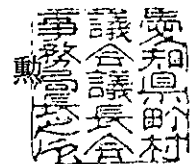 愛知県町村
議会議長会
事務局長之印
勲